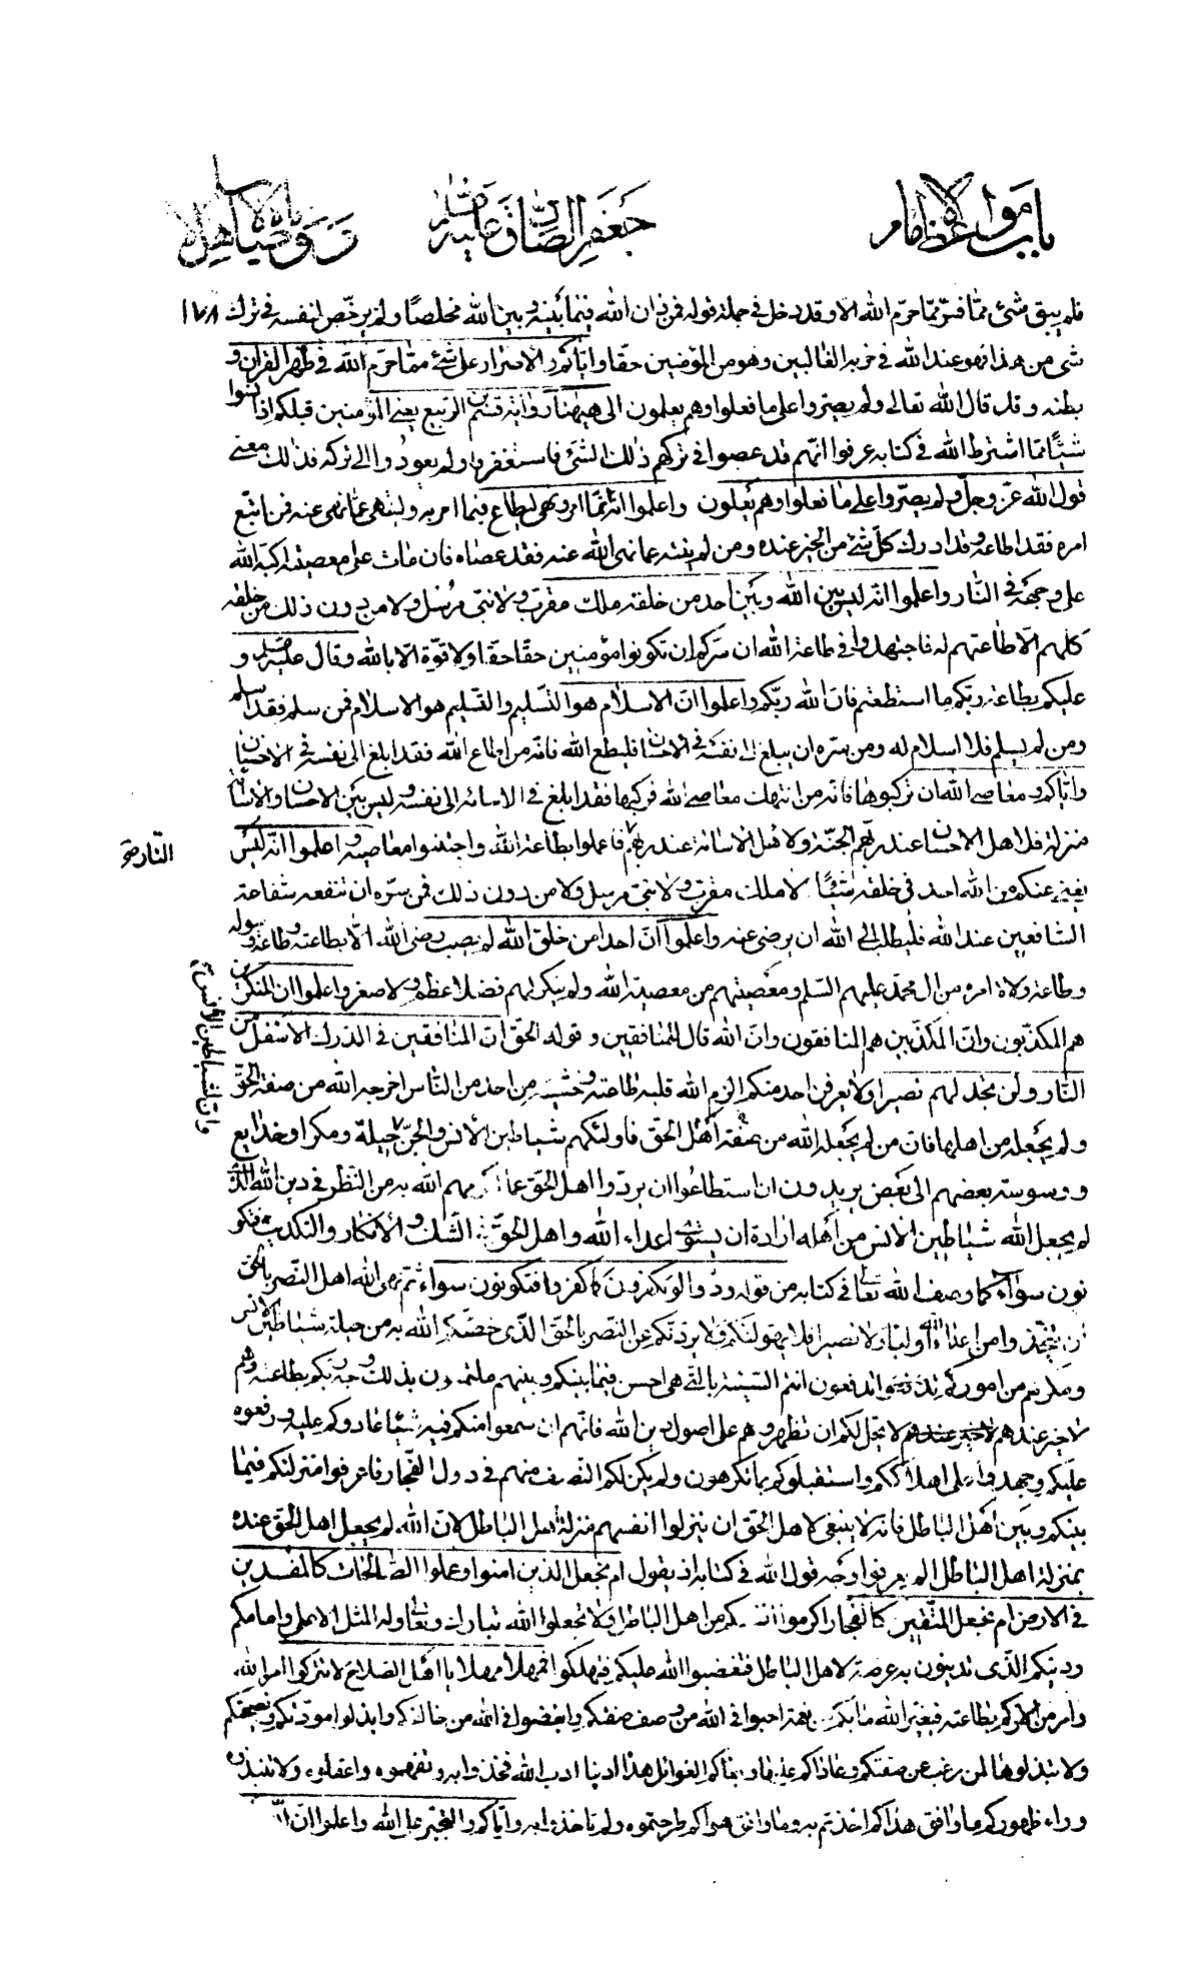 باب مواعظ الامام جعفر الصادق عليه السلام ووصاياه
فلم يبق شئ مما فسر مما حرم الله الا وقد دخل في جملة قوله فمن دان الله فيما بينه وبين الله مخلصا ولم يرخص لنفسه في ترك ١٧٨
شئ من هذا فهو عند الله في حزبه الغالبين وهو من المؤمنين حقا واياكم والاصرار على شئ مما حرم الله في ظهر القران و
بطنه وقد قال الله تعالى ولم يصروا على ما فعلوا وهم يعلمون الى هيهنا رواية قسم بن الربيع يعني المؤمنين قبلكم اذا نسوا
شيئا مما اشترط الله في كتابه عرفوا انهم قد عصوا في تركهم ذلك الشئ فاستغفروا ولم يعودوا الى تركه فذلك معنى
قول الله عز وجل ولم يصروا على ما فعلوا وهم يعلمون واعلموا انه انما امر ونهى ليطاع فيما امر به ولينتهى عما نهى عنه فمن اتبع
امره فقد اطاعه وقد ادرك كل شئ من الخير عنده ومن لم ينته عما نهى الله عنه فقد عصاه فان مات على معصيته اكبه الله
على وجهه في النار واعلموا انه ليس بين الله وبين احد من خلقه ملك مقرب ولا نبي مرسل ولا من دون ذلك من خلقه
كلهم الا طاعتهم له فاجتهدوا في طاعة الله ان سركم ان تكونوا مؤمنين حقا حقا ولا قوة الا بالله وقال عليه السلم و
عليكم بطاعة ربكم ما استطعتم فان الله ربكم واعلموا ان الاسلام هو التسليم والتسليم هو الاسلام فمن سلم فقد اسلم
ومن لم يسلم فلا اسلام له ومن سره ان يبلغ الى نفسه في الاحسان فليطع الله فانه من اطاع الله فقد ابلغ الى نفسه في الاحسان
واياكم ومعاصي الله ان تركبوها فانه من انتهك معاصي الله فركبها فقد ابلغ في الاسائة الى نفسه وليس بين الاحسان والاسائة
منزلة فلاهل الاحسان عند ربهم الجنة ولاهل الاسائة عند ربهم فاعملوا بطاعة الله واجتنبوا معاصيه واعلموا انه ليس
النار صح
يغني عنكم من الله احد في خلقه شيئا لا ملك مقرب ولا نبي مرسل ولا من دون ذلك فمن سره ان تنفعه شفاعة
الشافعين عند الله فليطلب الى الله ان يرضى عنه واعلموا ان احدا من خلق الله لم يصب رضى الله الا بطاعته وطاعة رسوله
وطاعة ولاة امره من ال محمد عليهم السلم ومعصيتهم من معصية الله ولم ينكر لهم فضلا عظم ولا صغر واعلموا ان المنكرين
هم المكذبون وان المكذبين هم المنافقون وان الله قال للمنافقين وقوله الحق ان المنافقين في الدرك الاسفل من
النار ولن تجد لهم نصيرا ولا يعرفن احد منكم الزم الله قلبه طاعته وخشيته من احد من الناس اخرجه الله من صفة الحق
ولم يجعله من اهلها فان من لم يجعله الله من صفة اهل الحق فاولئكهم شياطين الانس والجن حيلة ومكرا وخدايع
وان لشياطين الانس
ووسوسة بعضهم الى بعض يريدون ان استطاعوا ان يردوا اهل الحق عما اكرمهم الله به من النظر في دين الله الذي
لم يجعل الله شياطين الانس من اهله ارادة ان يستوي اعداء الله واهل الحق في الشك والانكار والتكذيب فيكو
نون سواء كما وصف الله تعالى في كتابه من قوله ودوا لو تكفرون كما كفروا فتكونون سواء ثم نهى الله اهل النصر بالحق
ان يتخذوا من اعداء الله وليا ولا نصيرا فلا يهولنكم ولا يردنكم عن النصر بالحق الذي خصكم الله به من حيلة شياطين الانس
ومكرهم من اموركم تدفعون انتم السيئة بالتي هي احسن فيما بينكم وبينهم ملتمسون بذلك وجه ربكم بطاعته وهم
لا خير عندهم لا يحل لكم ان تظهروهم على اصول دين الله فانهم ان سمعوا منكم فيه شيئا عادوكم عليه ورفعوه
عليكم وجهدوا على اهلاككم واستقبلوكم بما تكرهون ولم يكن لكم النصف منهم في دول الفجار فاعرفوا منزلتكم فيما
بينكم وبين اهل الباطل فانه لا ينبغي لاهل الحق ان ينزلوا انفسهم منزلة اهل الباطل لان الله لم يجعل اهل الحق عنده
بمنزلة اهل الباطل الم يعرفوا وجه قول الله في كتابه اذ يقول ام نجعل الذين امنوا وعملوا الصالحات كالمفسدين
في الارض ام نجعل المتقين كالفجار اكرموا انفسكم من اهل الباطل ولا تجعلوا الله تبارك وتعالى وله المثل الاعلى وامامكم
ودينكم الذي تدينون به عرضة لاهل الباطل فتغضبوا الله عليكم فتهلكوا فمهلا مهلا يا اهل الصلاح لا تتركوا امر الله
وامر من امركم بطاعته فيغير الله ما بكم من نعمة احبوا في الله من وصف صفتكم وابغضوا في الله من خالفكم وابذلوا مودتكم ونصيحتكم
ولا تبذلوها لمن رغب عن صفتكم وعاداكم عليها وبغاكم الغوائل هذا ادبنا ادب الله فخذوا به وتفهموه واعقلوه ولا تنبذوه
وراء ظهوركم ما وافق هداكم اخذتم به وما وافق هواكم طرحتموه ولم تاخذوا به واياكم والتجبر على الله واعلموا ان